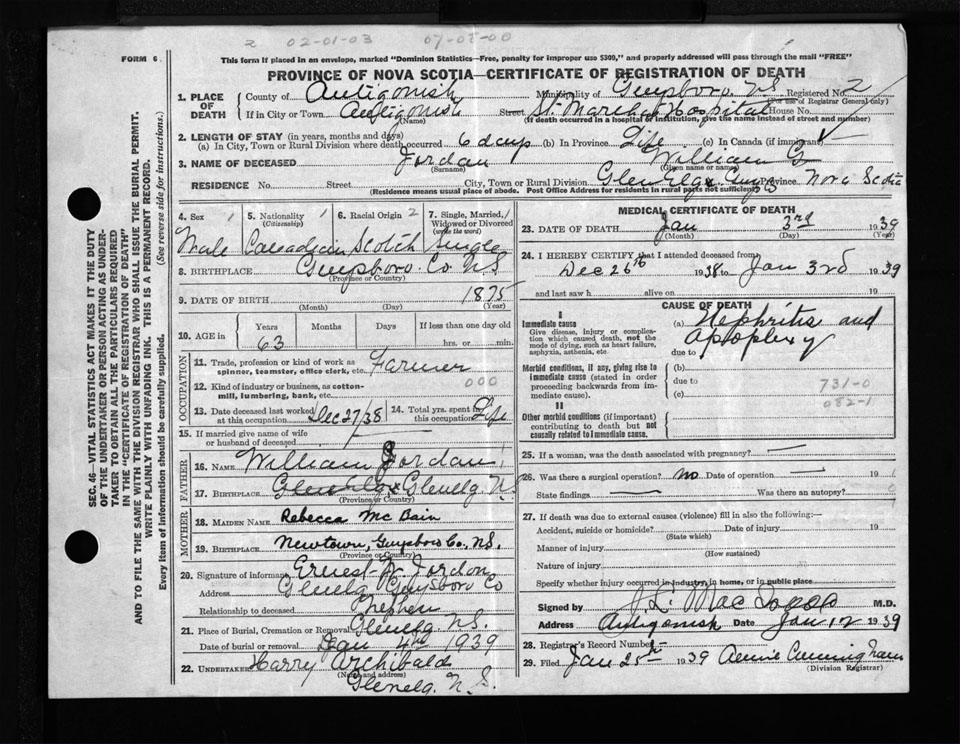 2 02-01-03 07-02-00
FORM 6
This form if placed in an envelope, marked "Dominion Statistics—Free, penalty for improper use $300", and properly addressed will pass through the mail "FREE"
PROVINCE OF NOVA SCOTIA—CERTIFICATE OF REGISTRATION OF DEATH
SEC. 46—VITAL STATISTICS ACT MAKES IT THE DUTY
OF THE UNDERTAKER OR PERSON ACTING AS UNDER-
TAKER TO OBTAIN ALL THE PARTICULARS REQUIRED
IN THE "CERTIFICATE OF REGISTRATION OF DEATH"
AND TO FILE THE SAME WITH THE DIVISION REGISTRAR WHO SHALL ISSUE THE BURIAL PERMIT.
WRITE PLAINLY WITH UNFADING INK. THIS IS A PERMANENT RECORD.
Every item of information should be carefully supplied. (See reverse side for instructions.)
1. PLACE OF DEATH
County of Antigonish Municipality of Guysboro. N.S. Registered No. 2
(For use of Registrar General only)
If in City or Town Antigonish Street St. Marthas Hospital House No.
(Name) (If death occurred in a hospital or institution, give the name instead of street and number)
2. LENGTH OF STAY (in years, months and days)
(a) In City, Town or Rural Division where death occurred 6 days (b) In Province Life (c) In Canada (if immigrant)
3. NAME OF DECEASED Jordan William G
(Surname) (Given name or names)
RESIDENCE No. Street City, Town or Rural Division Glenelg, Guys Province Nova Scotia
(Residence means usual place of abode. Post Office Address for residents in rural parts not sufficient)
4. Sex 1 5. Nationality 1 (Citizenship) 6. Racial Origin 2 7. Single, Married, Widowed or Divorced (write the word)
Male Canadian Scotch Single
8. BIRTHPLACE Guysboro Co N.S
(Province or Country)
9. DATE OF BIRTH 1875
(Month) (Day) (Year)
10. AGE in Years Months Days If less than one day old
63 hrs. or min.
OCCUPATION
11. Trade, profession or kind of work as spinner, teamster, office clerk, etc. Farmer
12. Kind of industry or business, as cotton-mill, lumbering, bank, etc. 000
13. Date deceased last worked at this occupation Dec 27/38 14. Total yrs. spent in this occupation Life
15. If married give name of wife or husband of deceased
FATHER
16. NAME William Jordan
17. BIRTHPLACE Glenelg N.S
(Province or Country)
MOTHER
18. MAIDEN NAME Rebecca Mc Bain
19. BIRTHPLACE Newtown, Guysboro Co, N.S.
(Province or Country)
20. Signature of informant Ernest Jordon
Address Glenelg Guysboro Co
Relationship to deceased Nephew
21. Place of Burial, Cremation or Removal Glenelg N.S.
Date of burial or removal Jan 4th 1939
22. UNDERTAKER Harry Archibald
(Name and address)
Glenelg. N.S.
MEDICAL CERTIFICATE OF DEATH
23. DATE OF DEATH Jan 3rd 1939
(Month) (Day) (Year)
24. I HEREBY CERTIFY that I attended deceased from
Dec 26th 1938 to Jan 3rd 1939
and last saw h alive on 19
CAUSE OF DEATH
I
Immediate cause
Give disease, injury or complication which caused death, not the mode of dying, such as heart failure, asphyxia, asthenia, etc
(a) Nephritis and
Apoplexy
due to
Morbid conditions, if any, giving rise to immediate cause (stated in order proceeding backwards from immediate cause).
due to 731-0
(c) 082-1
II
Other morbid conditions (if important) contributing to death but not causally related to immediate cause.
25. If a woman, was the death associated with pregnancy?
26. Was there a surgical operation? no Date of operation 19
State findings Was there an autopsy?
27. If death was due to external causes (violence) fill in also the following:—
Accident, suicide or homicide? Date of injury 19
(State which)
Manner of injury
(How sustained)
Nature of injury
Specify whether injury occurred in industry, in home, or in public place
Signed by MacIsaac M.D.
Address Antigonish Date Jan 12 1939
28. Registrar's Record Number
29. Filed Jan 25th 1939 Annie Cunningham
(Division Registrar)